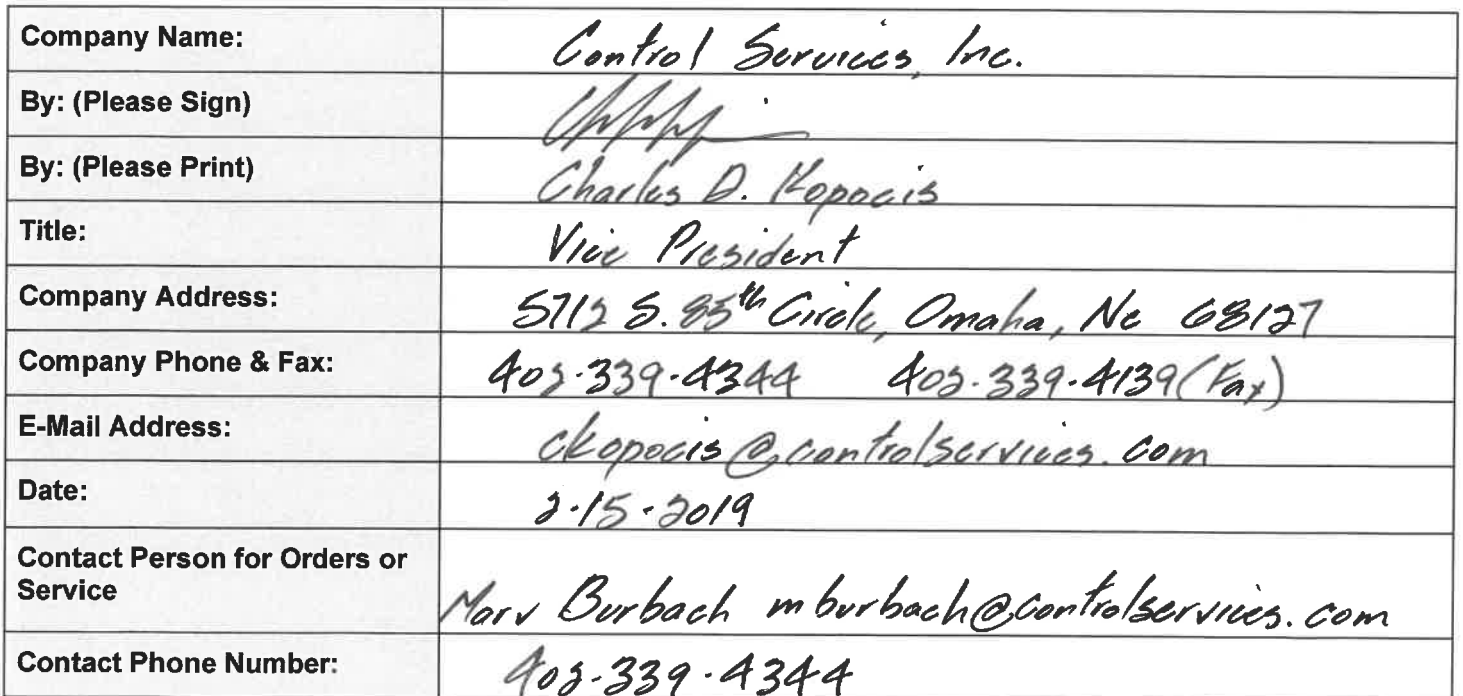 Company Name: Control Services, Inc.
By: (Please Sign)
By: (Please Print) Charles D. Kopocis
Title: Vice President
Company Address: 5712 S. 85th Circle, Omaha, Ne 68127
Company Phone & Fax: 402-339-4344 402-339-4139 (Fax)
E-Mail Address: ckopocis@controlservices.com
Date: 2-15-2019
Contact Person for Orders or
Service Marv Burbach mburbach@controlservices.com
Contact Phone Number: 402-339-4344